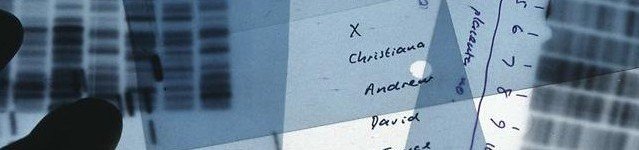 X
Christiana
Andrew
David
placenta
5
6
7
8
9